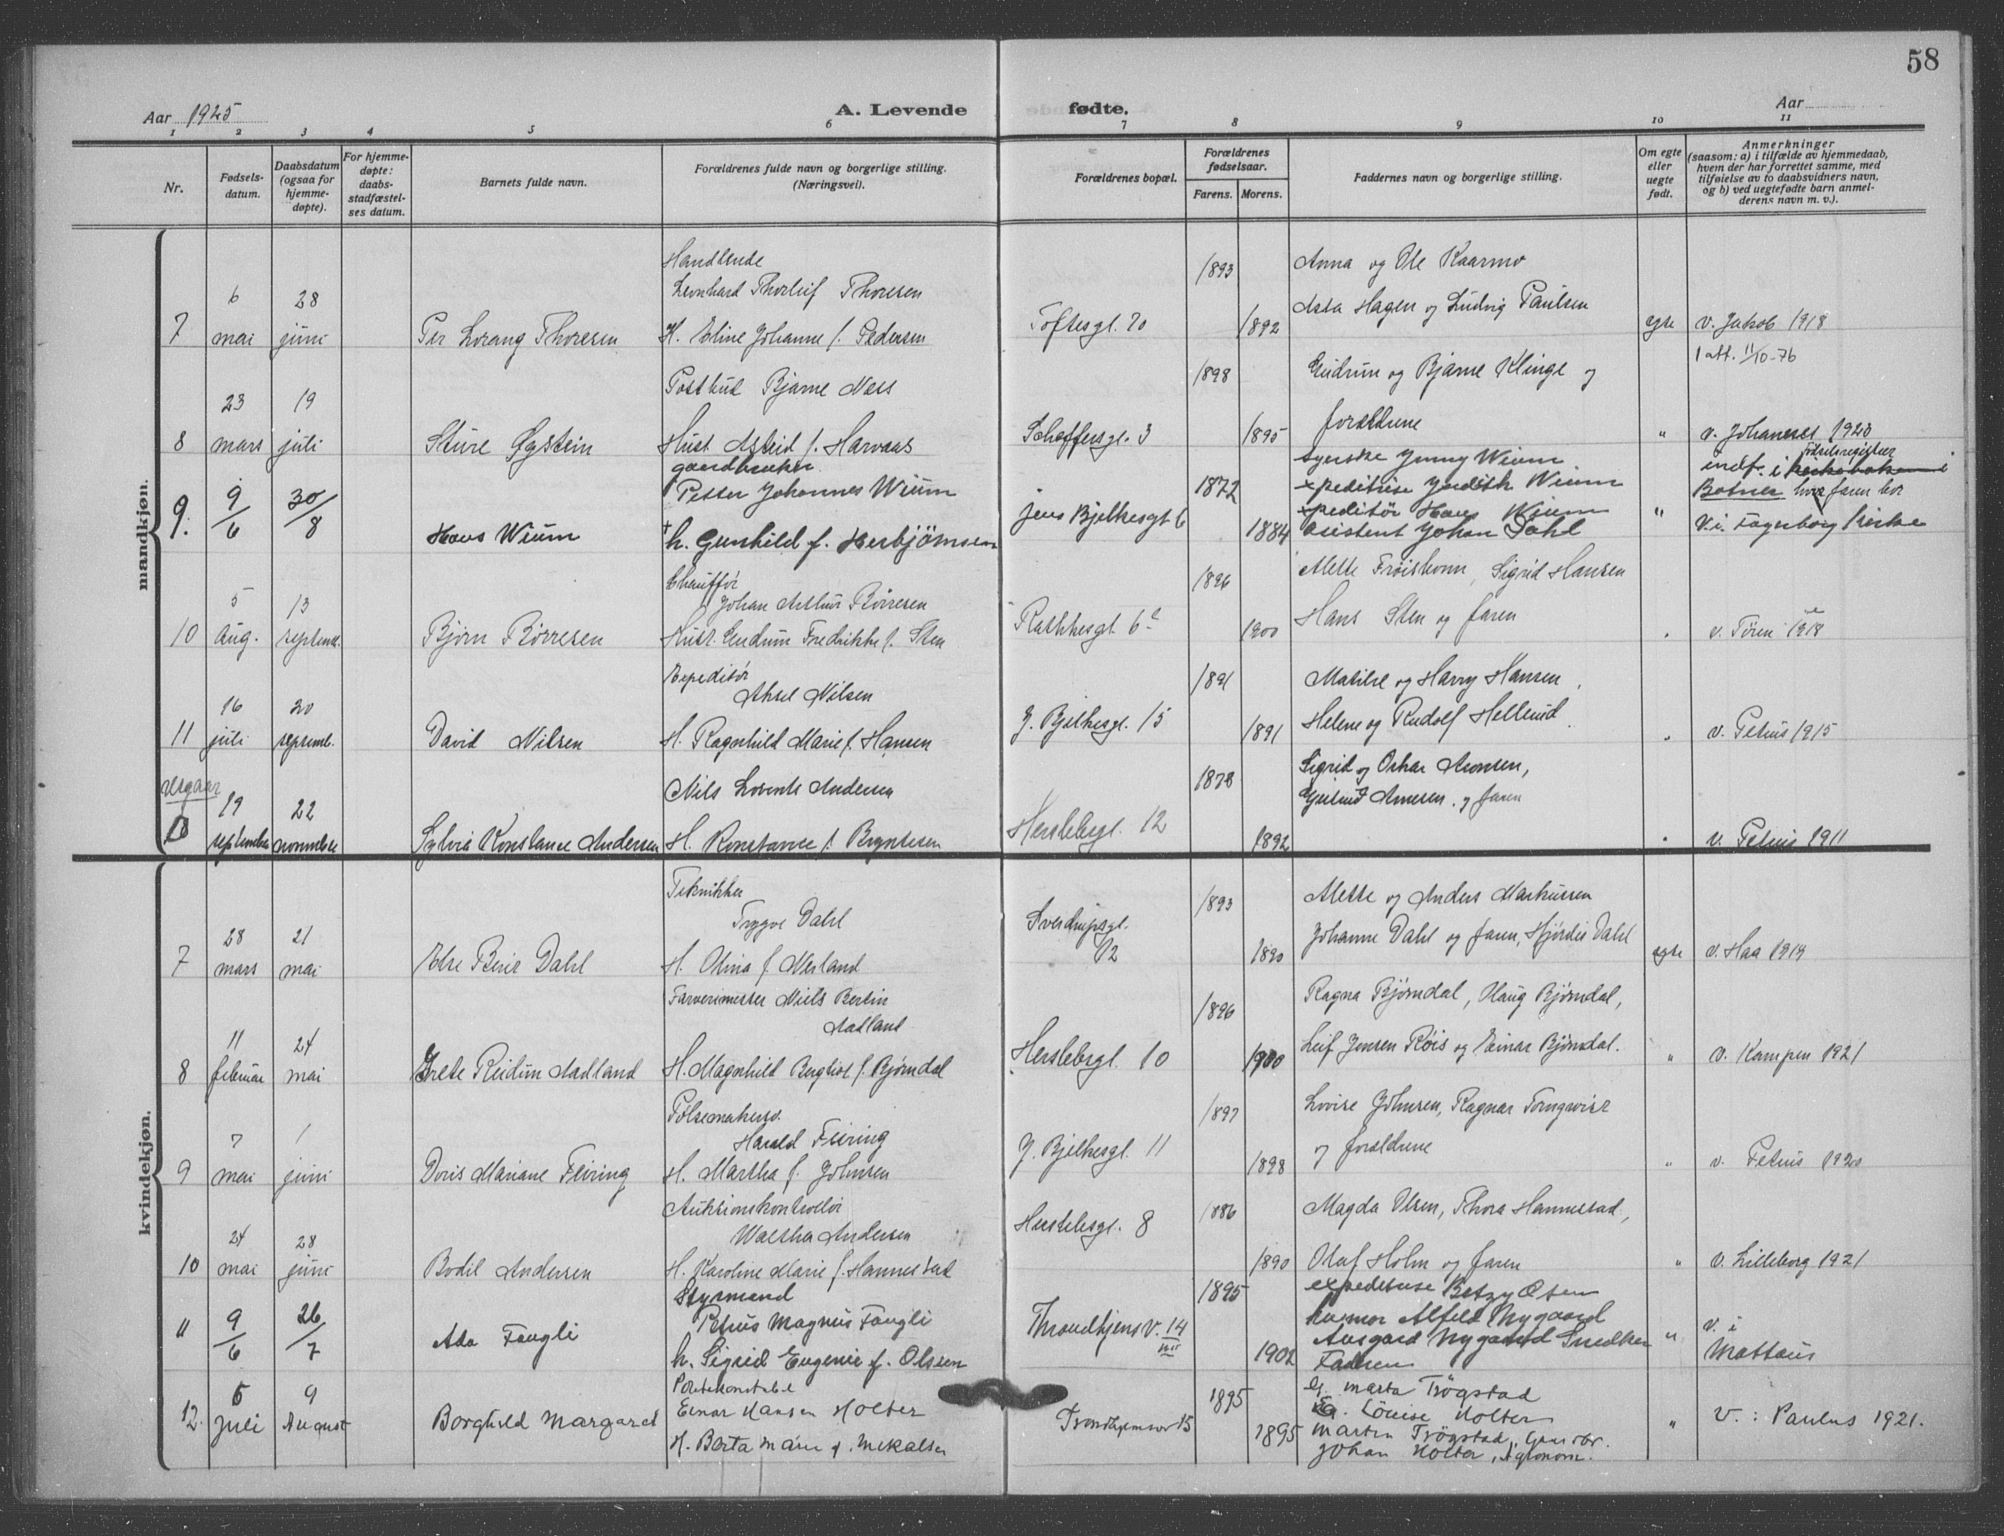 58
Aar 1925
A. Levende fødte.
Aar
1 2 3 4 5 6 7 8 9 10 11
Nr.
Fødsels-
datum.
Daabsdatum
(ogsaa for
hjemme-
døpte).
For hjemme-
døpte:
daabs-
stadfæstel-
ses datum.
Barnets fulde navn.
Forældrenes fulde navn og borgerlige stilling.
(Næringsvei).
Forældrenes bopæl.
Forældrenes
fødselsaar.
Farens. Morens.
Faddernes navn og borgerlige stilling.
Om egte
eller
uegte
født.
Anmerkninger
(saasom: a) i tilfælde av hjemmedaab,
hvem der har forrettet samme, med
tilføielse av to daabsvidners navn,
og b) ved uegtefødte barn anmel-
derens navn m. v.).
mandkjøn.
7
6
mai
28
juni
Per Lorang Thoresen
Handlende
Leonhard Thorleif Thoresen
H. Eline Johanne f. Pedersen
Toftesgt. 70
1893
1892
Anna og Ole Kaarmo
Asta Hagen og Ludvig Paulsen
egte
v. Jakob 1918
1 att. 11/10-76
8
23
mars
19
juli
Sture Øystein
Postbud Bjarne Næss
Hust. Astrid f. Harvaas
Scheffersgt. 3
1898
1895
Gudrun og Bjarne Klinge og
forældrene
"
v. Johannes 1923
9.
9/6
30/8
Hans Wium
gaardbruker
Petter Johannes Wium
h. Gunhild f. Herbjörnsen
jens Bjelkesgt 6
1872
1884
syerske Jenny Wium
expeditrise Judith Wium
expeditör Hans Wium
assistent Johan Dahl
"
indf. i fødselsregister i
Botner hvor faren bor
V. i Fagerborg kirke
10
5
aug.
13
septemb.
Bjørn Børresen
Chauffør
Johan Arthur Børresen
Hust. Gudrun Fredrikke f. Sten
Rathkesgt. 6
1896
1900
Mette Frøishom, Sigrid Hansen
Hans Sten og faren
v. Tøien 1918
11
16
juli
20
septemb.
David Nilsen
Expeditør
Aksel Nilsen
H. Ragnhild Marie f. Hansen
J. Bjelkesgt. 15
1891
1891
Matilde og Harry Hansen,
Helene og Rudolf Hellund
v. Petrus 1915
utgaar
19
september
22
november
Sylvia Konstance Andersen
Nils Lorents Andersen
H. Konstance f. Bryntesen
Herslebsgt. 12
1878
1892
Sigrid og Oskar Aronsen,
Gerlund Arnesen. og faren
v. Petrus 1911
kvindekjøn.
7
28
mars
21
mai
Else Berit Dahl
Tekniker
Trygve Dahl
H. Olina f. Nesland
Sverdrupsgt.
12
1893
1890
Mette og Anders Markussen
Johanne Dahl og faren, Hjørdis Dahl
egte
v. Haa 1914
8
11
februar
24
mai
Grete Reidun Aadland
Farverimester Niels Bertin
Aadland
H. Magnhild Bergliot f. Bjørndal
Herslebsgt. 10
1896
1900
Ragna Bjørndal, Haug Bjørndal,
Leif Jensen Røis og Einar Bjørndal.
"
v. Kampen 1921
9
7
mai
1
juni
Doris Mariane Feiring
Pølsemakersv.
Harald Feiring
H. Martha f. Johnsen
J. Bjelkesgt. 11
1897
1898
Lovise Johnsen, Ragnar Tornqvist
og forældrene
"
v. Petrus 1920
10
24
mai
28
juni
Bodil Andersen
Auktionskontrollør
Walther Andersen
H. Karoline Marie f. Hannestad
Herslebsgt. 8
1886
1890
Magda Olsen, Thora Hannestad,
Olaf Holm og faren
"
v. Lilleborg 1921
11
9/6
26/7
Ada Fougli
Styrmand
Petrus Magnus Fougli
h. Sigrid Eugenie f. Olssen
Throndhjensv. 14
1895
1902
expeditrise Betzy Olsen
Alfild Nygaard
Aasgard Nygaard Snedker
Fadren
"
v. i
Mattæus
12.
5
juli
9
August
Borghild Margaret
Politikonstabel
Einar Hansen Holter
H. Berta Marie f. Mikalsen
Trondhjemsv 15
1895
1895
G. Marta Trögstad
G. Louise Holter
Martin Trögstad, Gaardbr.
Johan Holter, Agronom.
"
V. : Paulus 1921.